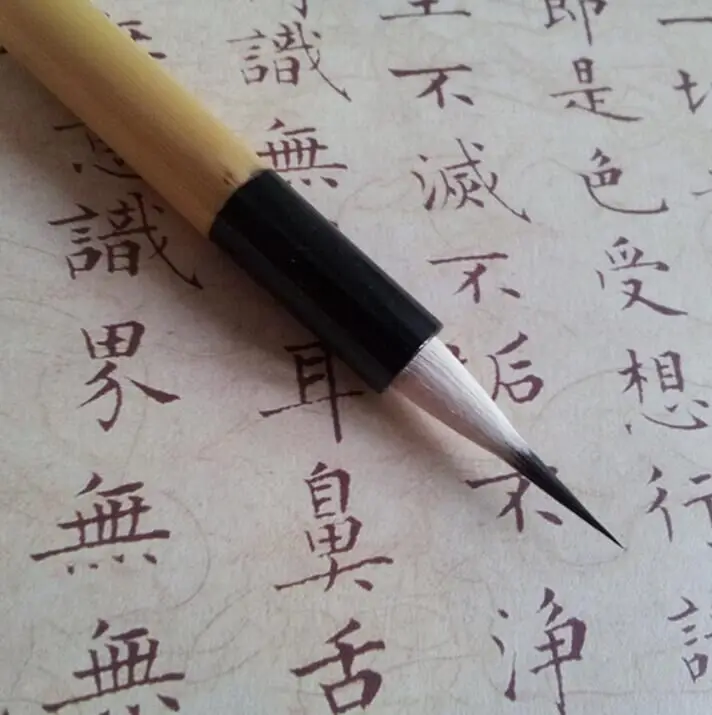 一切
即是色受想行
不滅不垢不浄
識無耳鼻舌
意識界無無